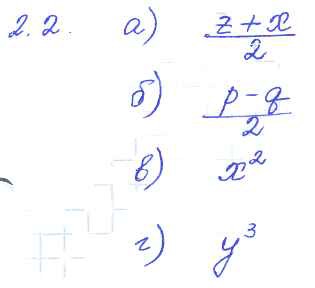 2.2. а) (z+x)/2
б) (p-q)/2
в) x²
г) y³